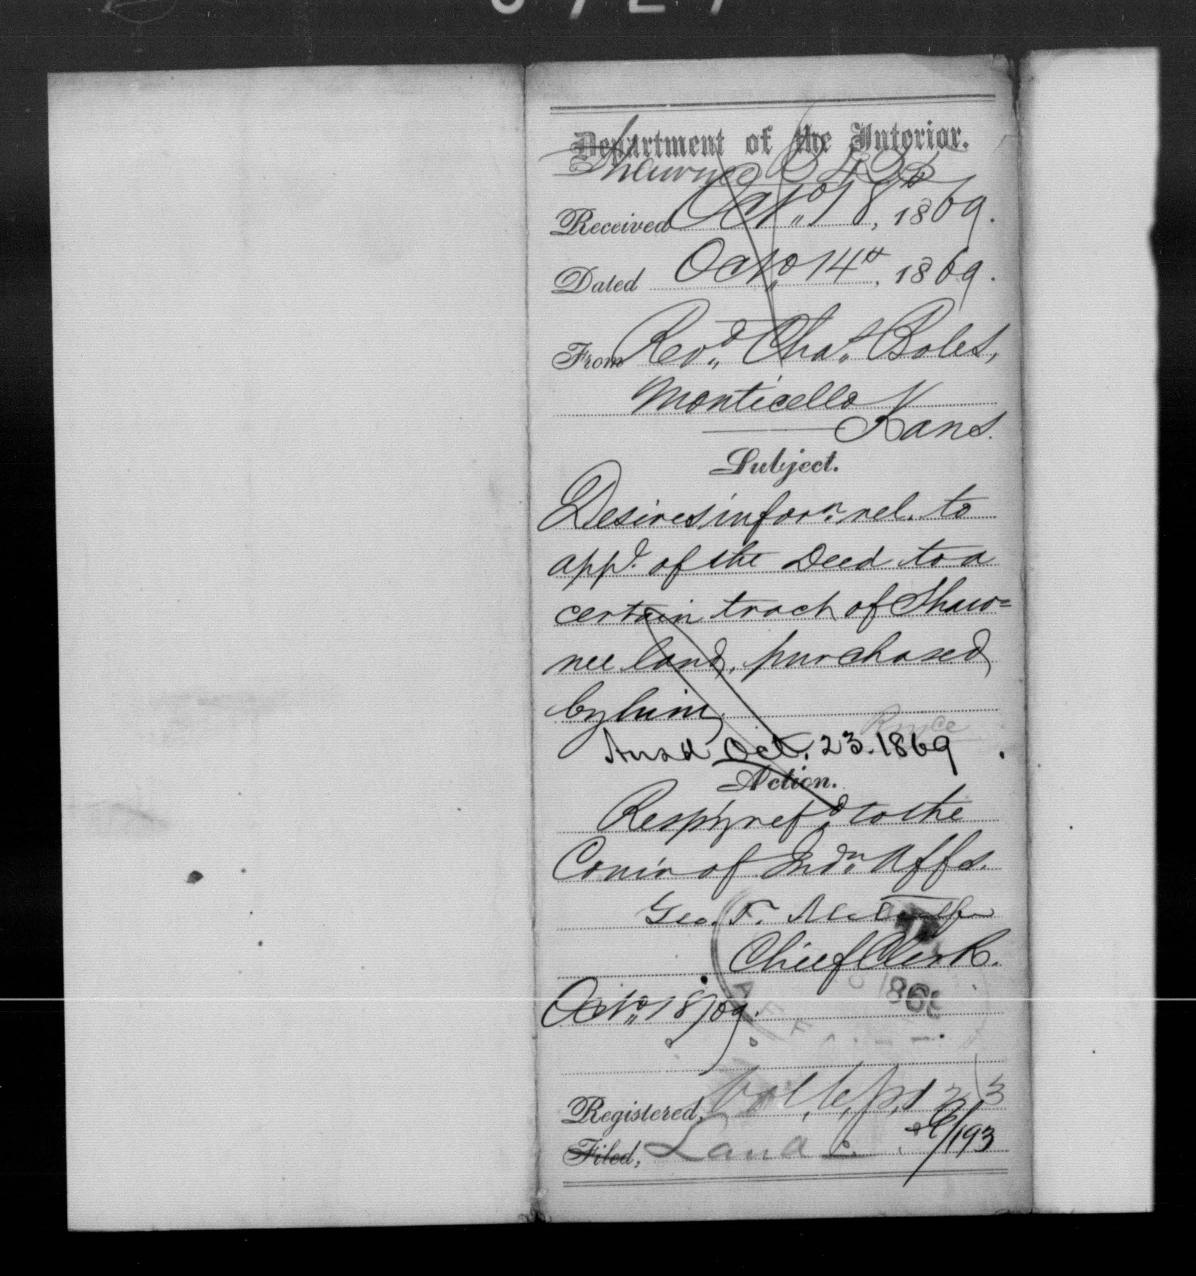 Department of the Interior.
Shawnee
Received Octo. 18th, 1869.
Dated Octo. 14th, 1869.
From Revd. Chas. Boles,
Monticello
Kans.
Subject.
Desires inforn. rel. to
appl. of the Deed to a
certain tract of Shaw=
nee land, purchased
by him.
Ansd Oct. 23. 1869
Action.
Resp'y refd. to the
Com'r of Indn. Affs.
Geo. F.
Chief Clerk.
Octo. 18/69.
AFF
186
Registered, Vol. 6, p. 1
Filed, Land
193